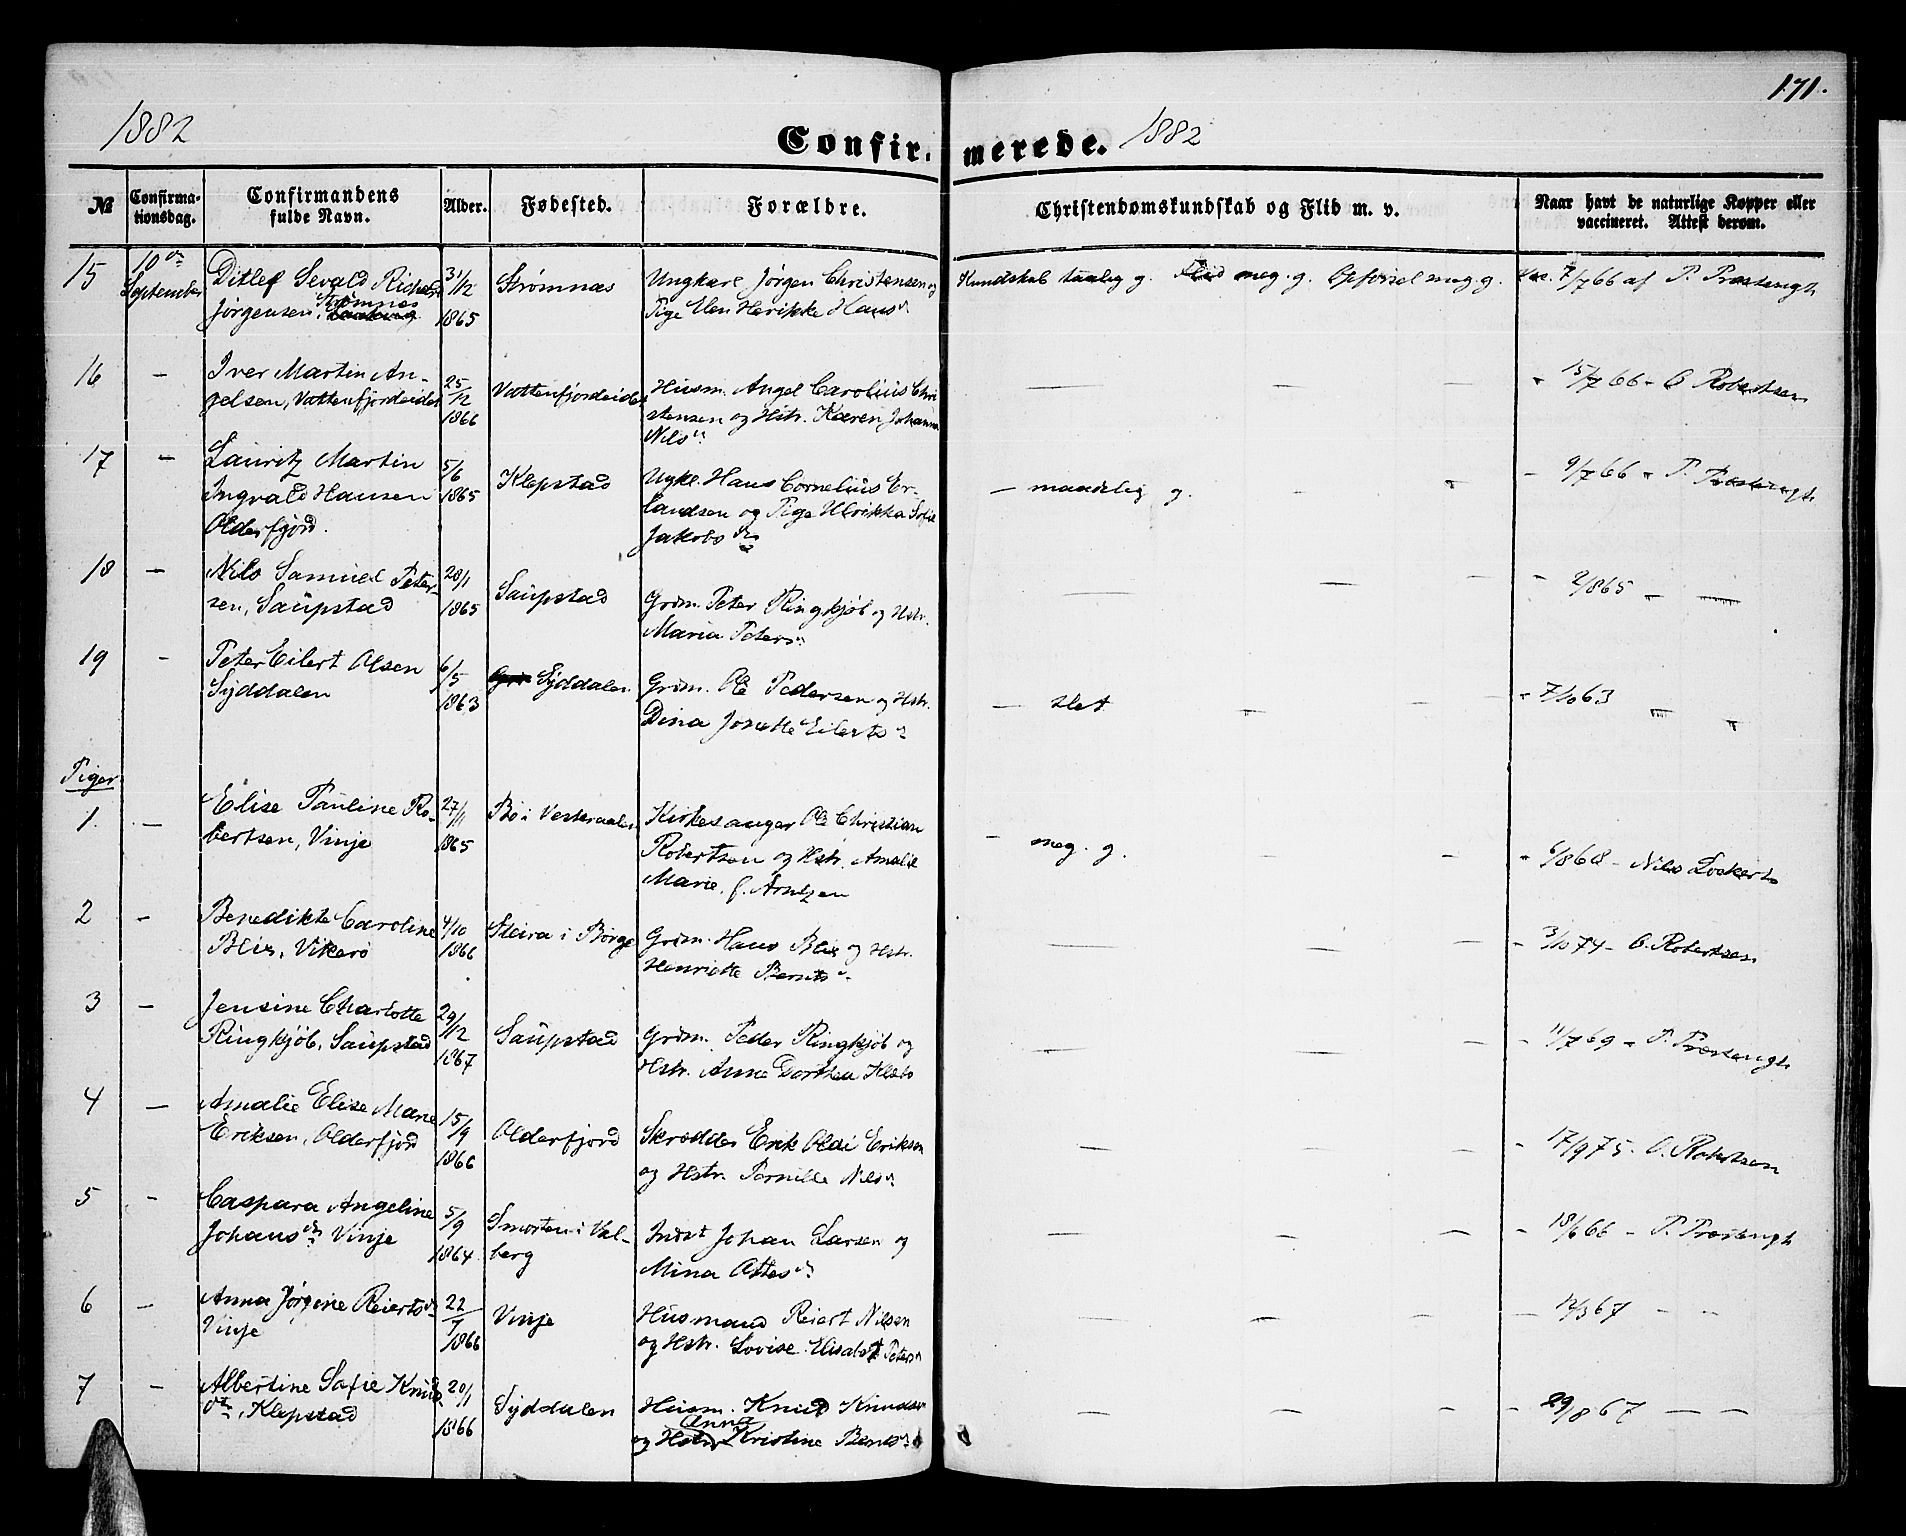 171.
1882
Confirmerede.
1882
№
Confirmationsdag.
Confirmandens fulde Navn.
Alder.
Fødested.
Forældre.
Christendomskundskab og Flid m. v.
Naar havt de naturlige Kopper eller vaccineret. Attest derom.
15
10de September
Ditlef Sevald Richard
Jørgensen, Strømnæs
31/12
1865
Strømnæs
Ungkarl Jørgen Christensen og
Pige Elen Henrikke Hansd.
Kundskab taalig g. Flid meg. g. Opførsel meg. g.
Vac. 7/7 66 af P. Præstengh.
16 —
Iver Martin An-
gelsen, Vattenfjordeidet
25/12
1866
Vattenfjordeidet
Husm. Angel Carolius Chri
stensen og Hstr. Karen Johanna
Nilsd.
— — —
" 15/7 66 - O. Robertsen
17 —
Lauritz Martin
Ingvald Hansen
Olderfjord.
5/6
1865
Klepstad
Ugkl. Hans Cornelius Er-
landsen og Pige Ulrikka Sofie
Jakobsdr
— maadelig g. — "
— 9/7 66 " P. Præstengh
18 —
Nils Samuel Peter-
sen, Saupstad
28/1
1865
Saupstad
Grdm. Peter Ringkjøb og Hstr.
Maria Petersd.
— — —
" 2/865 — —
19 —
Peter Eilert Olsen
Sÿddalen
6/5
1863
Sÿddalen
Grdm. Ole Pedersen og Hstr.
Dina Jonette Eilertsd.
— slet " — —
" 7/10 63 " "
Piger
1. —
Elise Pauline Ro-
bertsen, Vinje
27/11
1865
Bø i Vesteraalen
Kirkesanger Ole Christian
Robertsen og Hstr. Amalie
Marie, f. Arntzen
— meg. g. — —
" 6/8 68 - Nils Lockert
2 —
Benedikte Caroline
Blix, Vikerø
4/10
1866
Steira i Borge
Grdm. Hans Blix og Hstr.
Henriette Berntsd.
— — —
" 3/10 74 - O. Robertsen
3 —
Jensine Charlotte
Ringkjöb, Saupstad
29/12
1867
Saupstad
Grdm. Peder Ringkjöb og
Hstr. Anne Dorthea Klæbo
— — —
" 11/7 69 " P. Præstengh
4 —
Amalie Elise Marie
Eriksen, Olderfjord
15/9
1866
Olderfjord
Skrædder Erik Olai Eriksen
og Hstr. Pernille Nilsd.
— — —
" 17/9 75 - O. Robertsen
5 —
Caspara Angeline
Johansdr. Vinje
5/9
1864
Smorten i Val-
berg
Indst Johan Larsen og
Mina Ottesd.
— — —
" 18/6 66 - P. Præstengh
6 —
Anna Jørgine Reiertsd.
Vinje
22/7
1866
Vinje
Husmand Reiert Nilsen
og Hstr. Lovise Elisabet Petersd.
— — —
— 12/3 67 — "
7 —
Albertine Sofie Knuds
dr., Klepstad
20/1
1866
Sÿddalen
Husm. Knud Knudsen
og Hstr Anna Kristine Bentsd.
— — —
— 29/8 67 — —